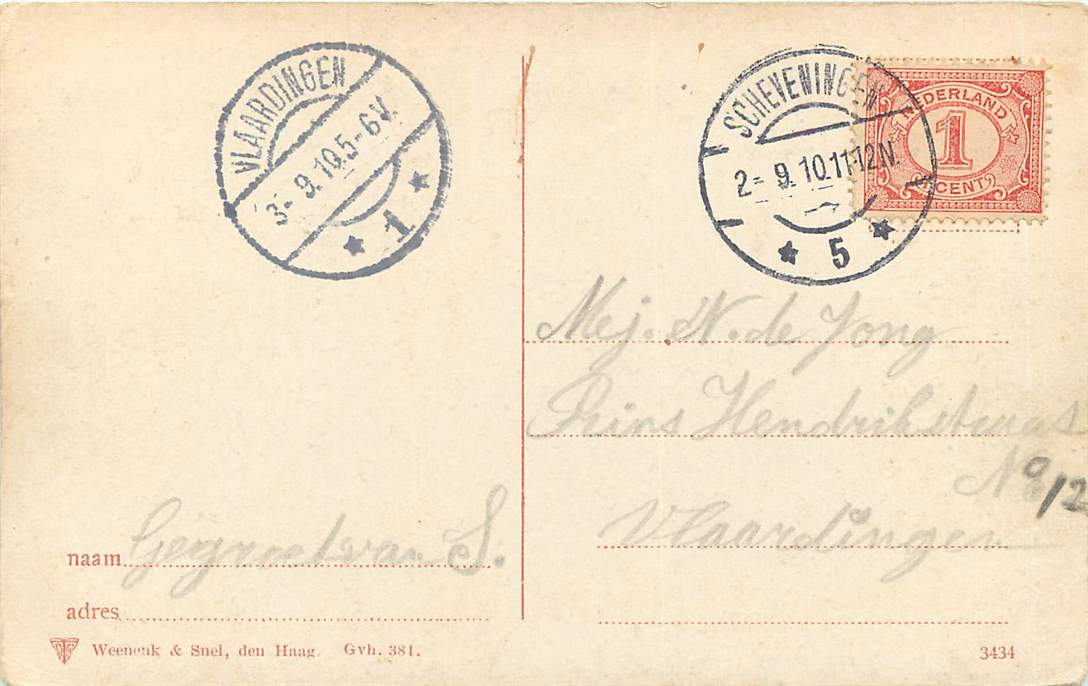 VLAARDINGEN
3-9.10.5-6V.
1
SCHEVENINGEN
2-9.10.11-12N.
5
NEDERLAND
1
CENT
Mej. N. de Jong
Prins Hendrikstraat
No
12
Vlaardingen
naam Gegroet van S.
adres
Weenenk & Snel, den Haag. Gvh. 381.
3434